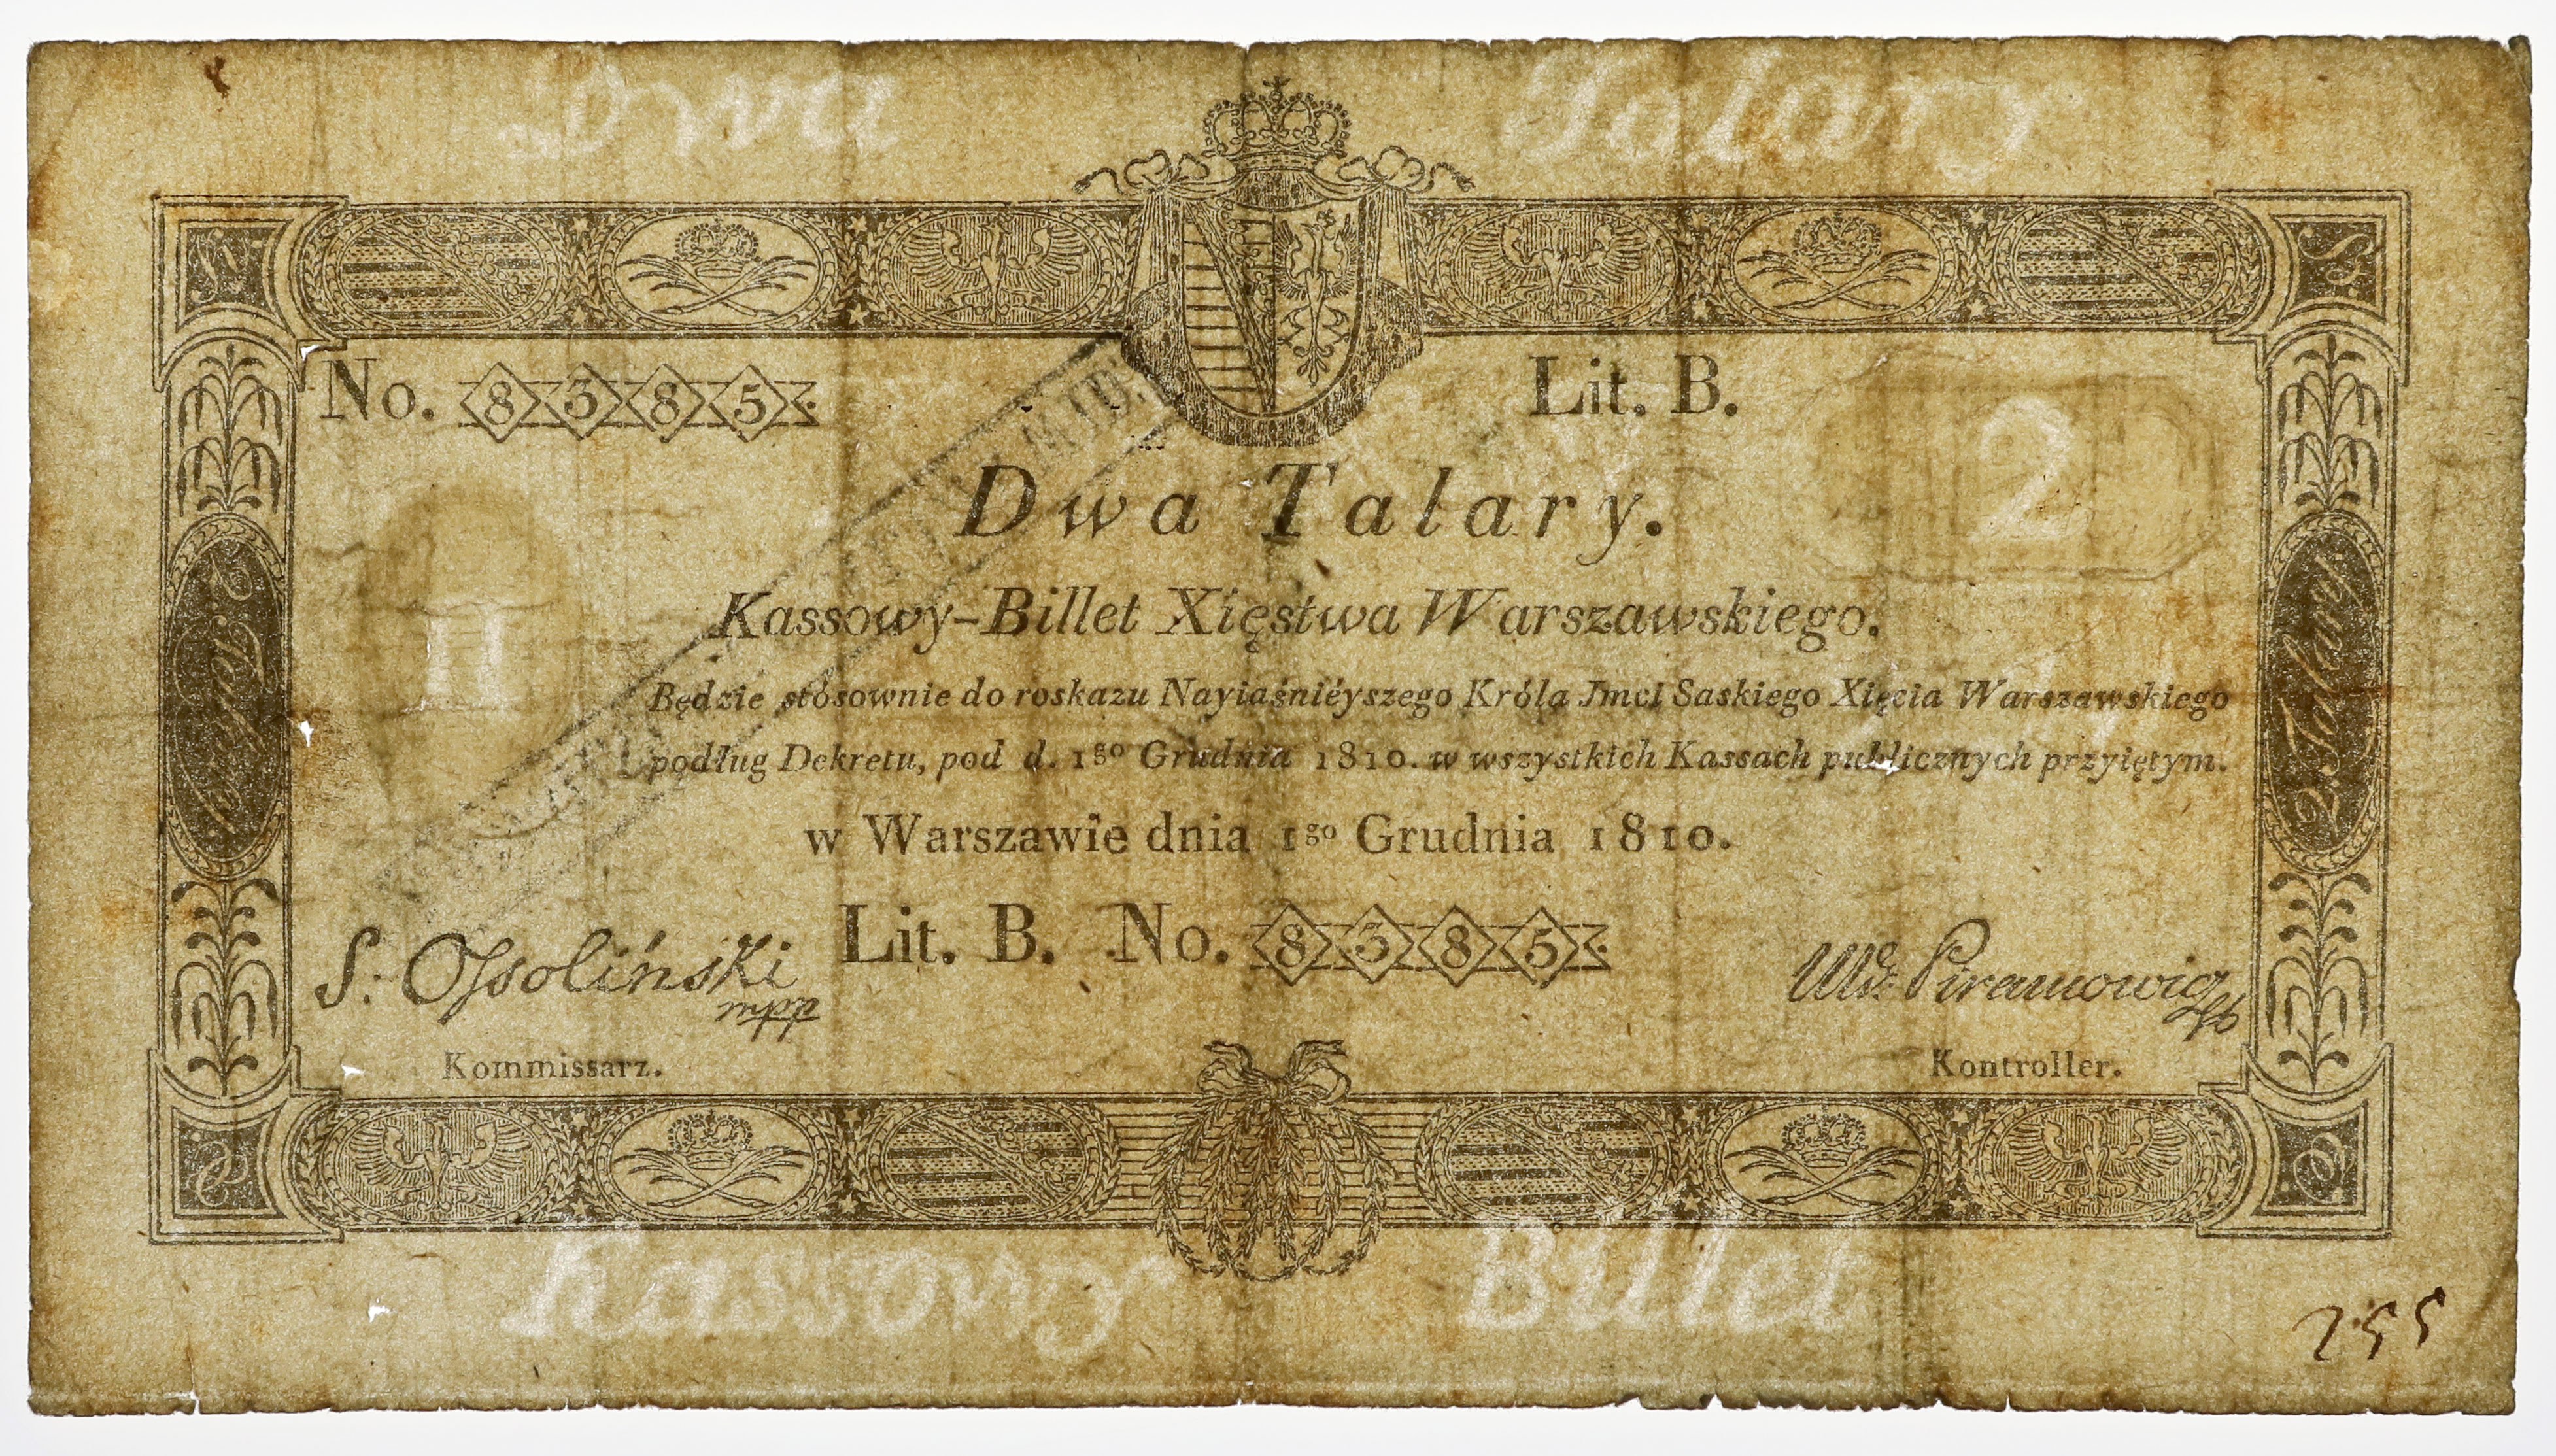 Dwa Talary
No. 8385.
Lit. B.
2
Dwa Talary.
II
Kassowy-Billet Xięstwa Warszawskiego.
Będzie stósownie do roskazu Nayiaśniéyszego Króla Jmci Saskiego Xięcia Warszawskiego
podług Dekretu, pod d. 1go Grudnia 1810. w wszystkich Kassach publicznych przyiętym.
w Warszawie dnia 1go Grudnia 1810.
Lit. B. No. 8385.
S: Ossoliński
mpp
Wd: Piramowicz
Kommissarz.
Kontroller.
2 Talary
Kassowy Billet
255